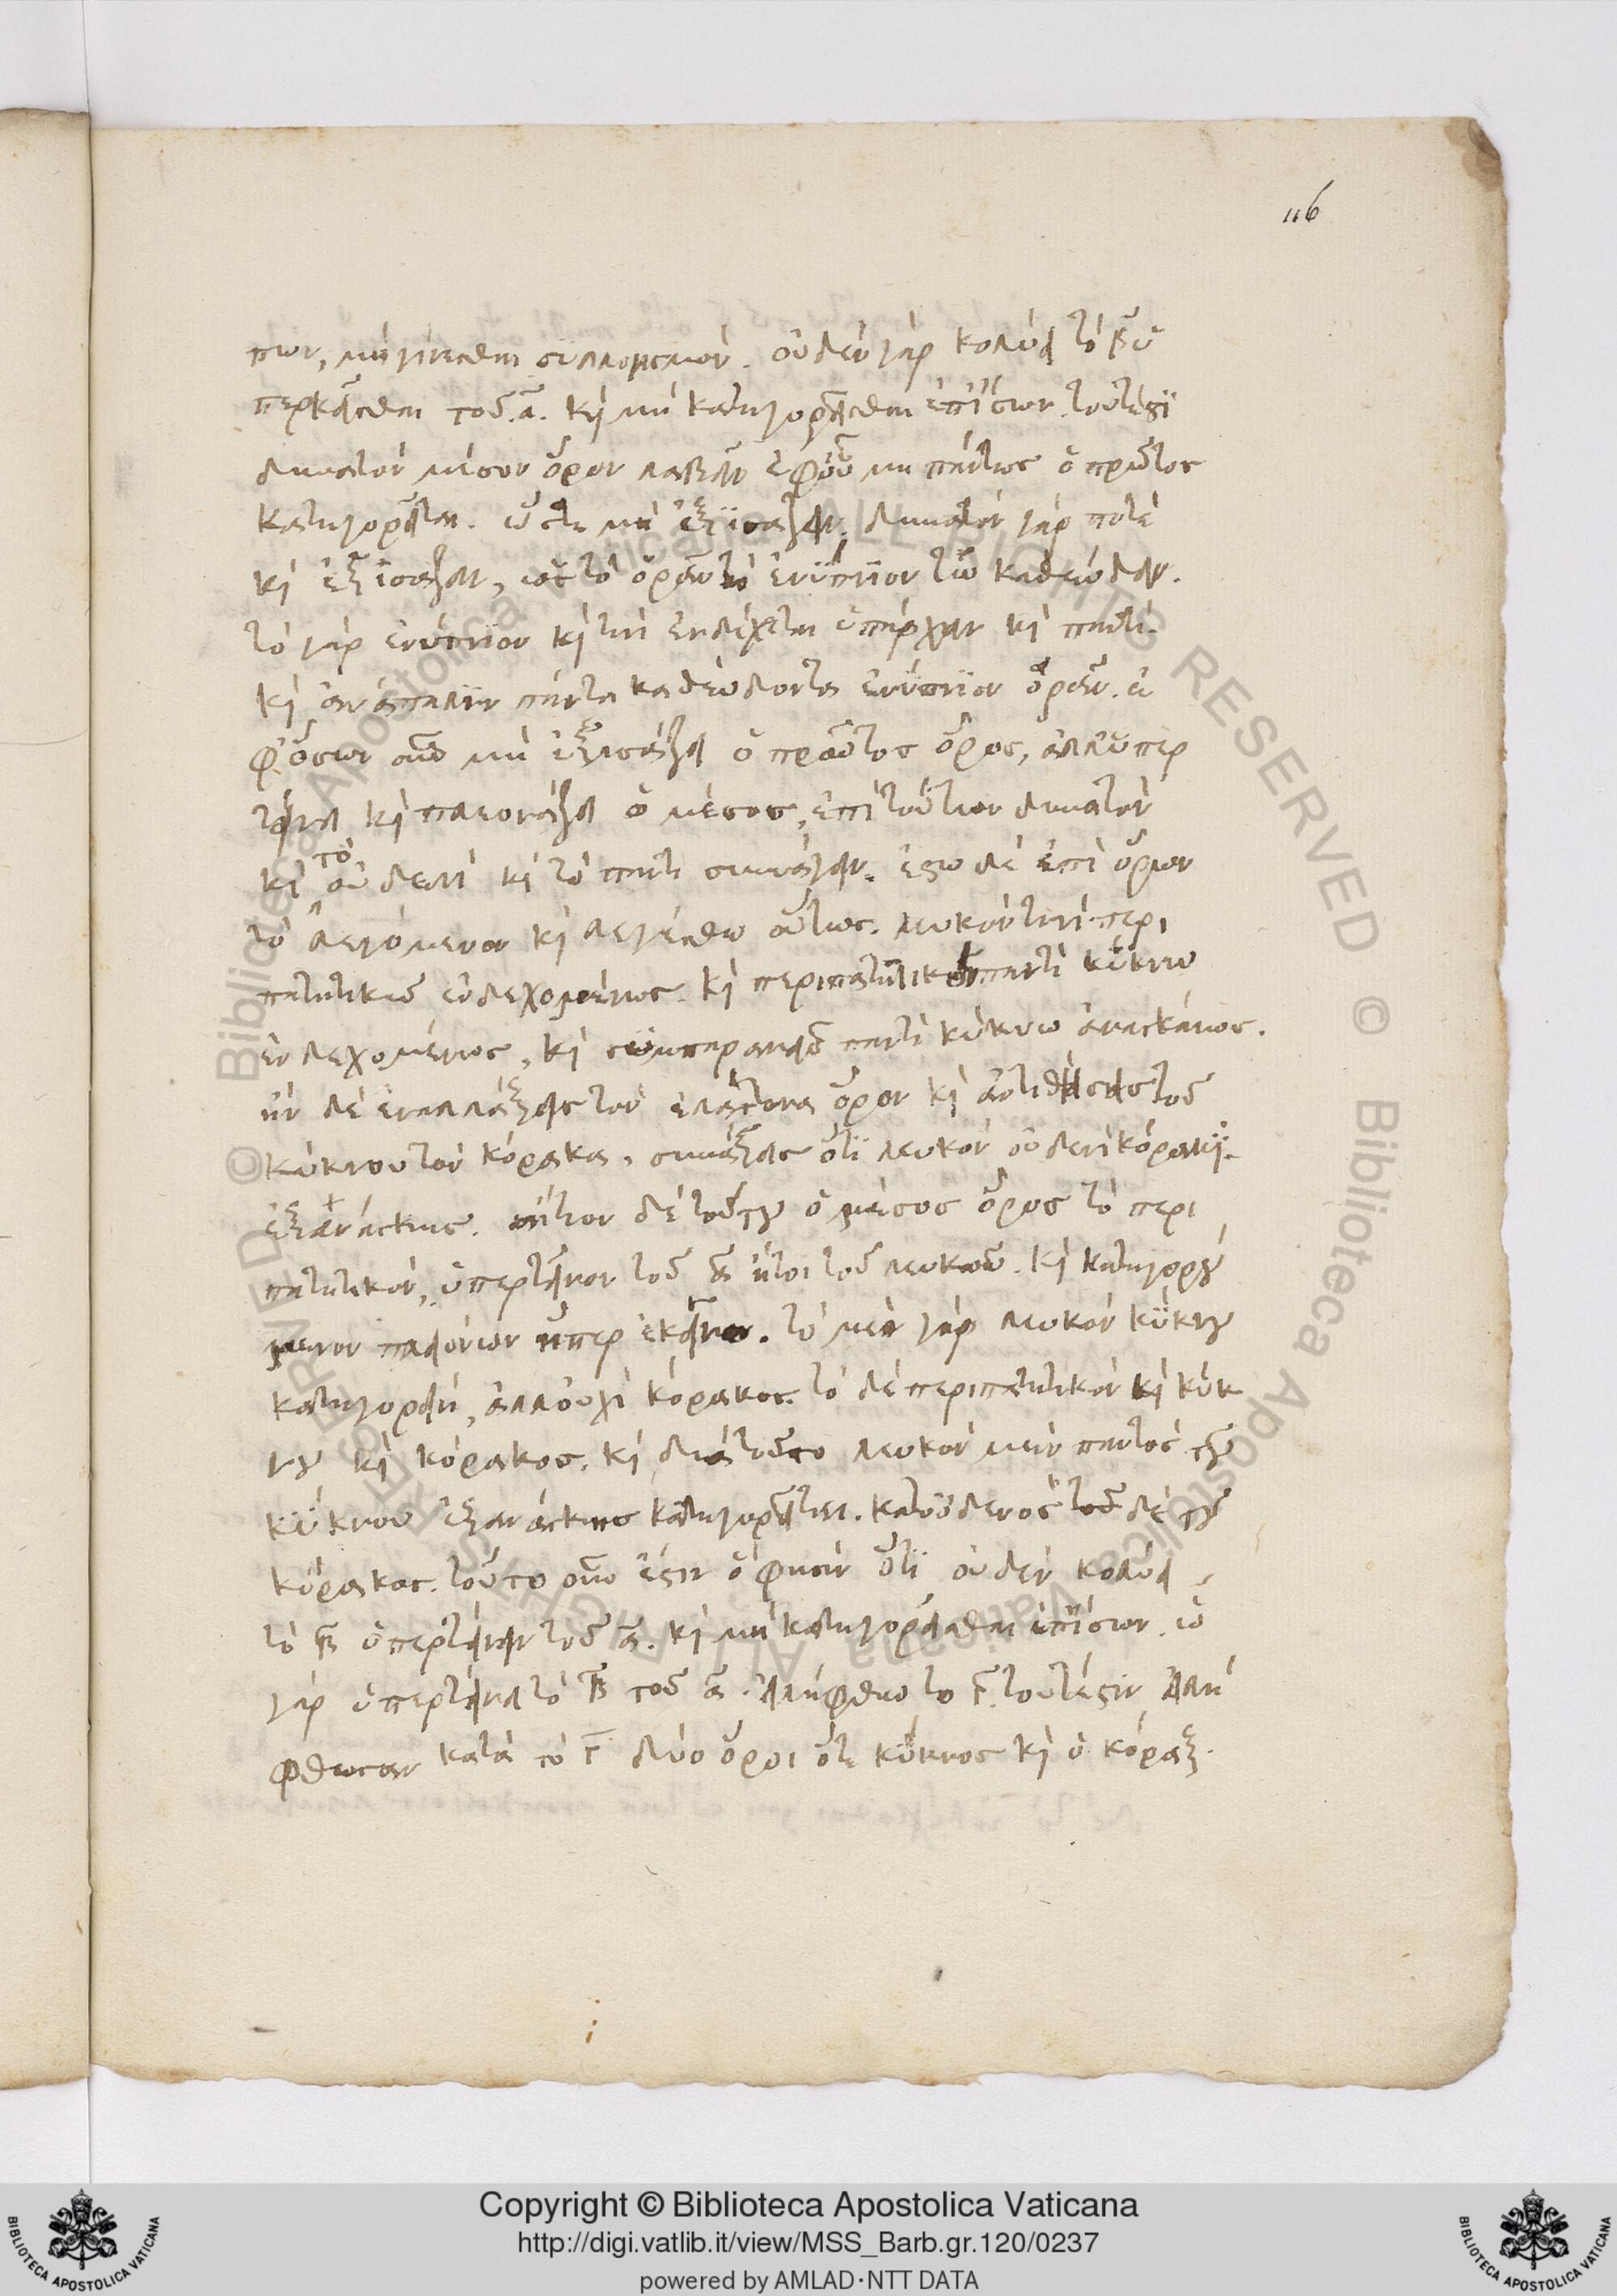 116
πων, μὴ γίνεσθαι συλλογισμόν. οὐδὲν γὰρ κολύει τὸ β ὑ
περκεῖσθαι τοῦ α. κὶ μὴ κατηγορεῖσθαι ἐπίσων. τουτέστι
δυνατὸν μέσον ὅρον λαβεῖν ἐφ οὗ μὴ πάντως ὁ πρῶτος
κατηγορεῖται. ὥστε μὴ ἐξισάζειν. δυνατὸν γάρ ποτε
κὶ ἐξισάζειν, ὡς τὸ ὁρᾶν τὸ ἐνύπνιον τῶ καθεύδειν.
τὸ γὰρ ἐνύπνιον κὶ τινὶ ἐνδέχεται ὑπάρχειν κὶ παντί.
κὶ ἀνάπαλιν πάντα καθεύδοντα ἐνύπνιον ὁρᾶν. ἐ
φ ὅσων οὖν μὴ ἐξισάζει ὁ πρῶτος ὅρος, ἀλλ ὑπερ
τείνει κὶ πλεονάζει ὁ μέσος, ἐπὶ τούτων δυνατὸν
κὶ τὸ οὐδενὶ κὶ τὸ παντὶ συνάγειν. ἔστω δὲ ἐπὶ ὅρων
τὸ λεγόμενον κὶ λεγέσθω οὕτως. λευκὸν τινὶ περι
πατητικῶ ἐνδεχομένως. κὶ περιπατητικὸν παντὶ κύκνω
ἐνδεχομένως, κὶ συμπερανεῖ παντὶ κύκνω ἀναγκαίως.
ἢν δὲ ἐναλλάξεις τὸν ἐλάττονα ὅρον κὶ ἀντιθήσεις τοῦ
κύκνου τὸν κόρακα, συνάξεις ὅτι λευκὸν οὐδενὶ κόρακι
ἐξανάγκης. αἴτιον δὲ τούτου ὁ μέσος ὅρος τὸ περι
πατητικὸν, ὑπερτεῖνον τοῦ α ἤτοι τοῦ λευκοῦ. κὶ κατηγορού
μενον πλειόνων ἤπερ ἐκεῖνο. τὸ μὲν γὰρ λευκὸν κύκνου
κατηγορεῖ, ἀλλ οὐχὶ κόρακος. τὸ δὲ περιπατητικὸν κὶ κύκ
νου κὶ κόρακος. κὶ διὰ τοῦτο λευκὸν μὲν παντὸς τοῦ
κύκνου ἐξανάγκης κατηγορεῖται. κατ οὐδενὸς τοῦ δὲ τοῦ
κόρακος. τοῦτο οὖν ἐστιν ὅ φησιν ὅτι οὐδὲν κολύει
τὸ β ὑπερτείνειν τοῦ α. κὶ μὴ κατηγορεῖσθαι ἐπίσων. ὧ
γὰρ ὑπερτείνει τὸ β τοῦ α. εἰλήφθω το γ. τουτέστιν εἰλή
φθωσαν κατὰ τὸ γ δύο ὅροι ὅτε κύκνος κὶ ὁ κόραξ.
Copyright © Biblioteca Apostolica Vaticana
http://digi.vatlib.it/view/MSS_Barb.gr.120/0237
powered by AMLAD·NTT DATA